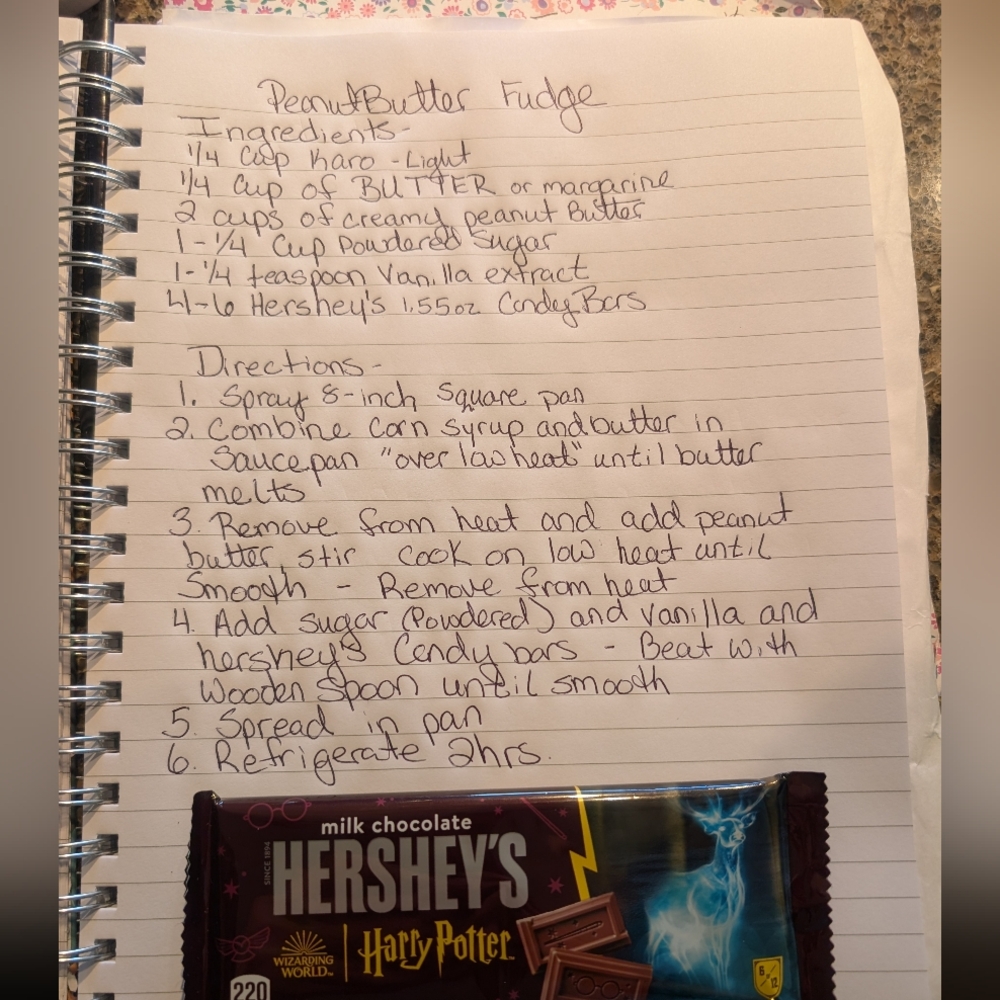 Peanut Butter Fudge
Ingredients-
1/4 Cup Karo - Light
1/4 Cup of BUTTER or margarine
2 cups of creamy peanut Butter
1-1/4 Cup Powdered Sugar
1-1/4 teaspoon Vanilla extract
4-6 Hershey's 1.55oz Candy Bars
Directions-
1. Spray 8-inch Square pan
2. Combine Corn Syrup and butter in
Saucepan "over low heat" until butter
melts
3. Remove from heat and add peanut
butter, stir cook on low heat until
Smooth - Remove from heat
4. Add sugar (Powdered) and vanilla and
hershey's Candy bars - Beat with
Wooden Spoon until smooth
5. Spread in pan
6. Refrigerate 2hrs.
milk chocolate
SINCE 1894
HERSHEY'S
WIZARDING
WORLD™
Harry Potter™
220
6/12